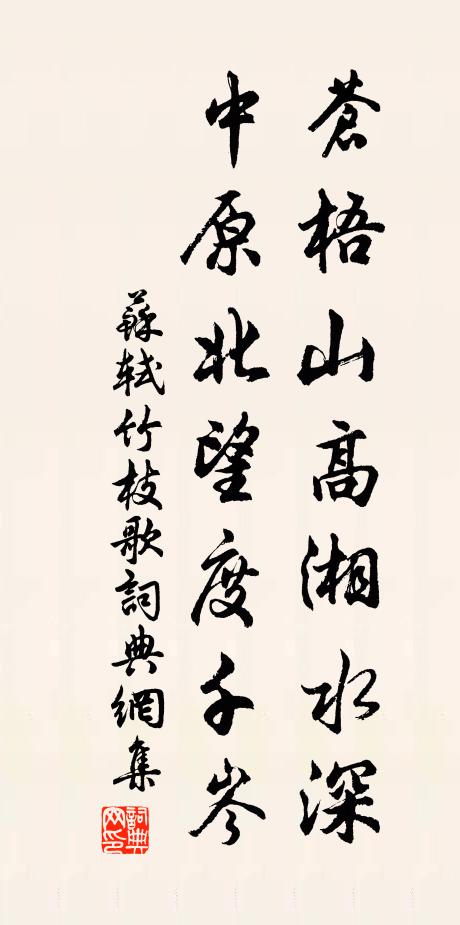 蒼梧山高湘水深
中原北望度千岑
蘇軾竹枝歌詞典網集
詞典網印